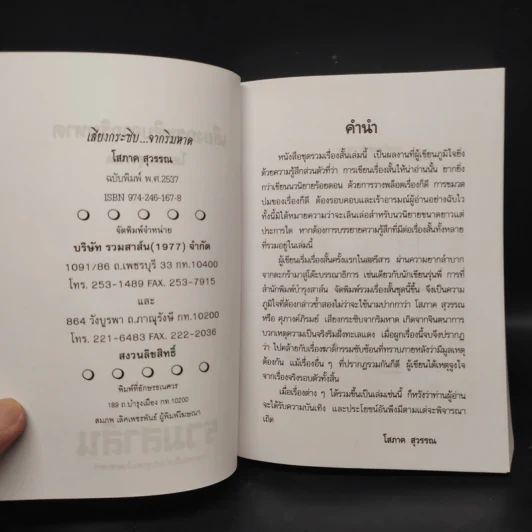 เสียงกระซิบ...จากริมหาด
โสภาค สุวรรณ
ฉบับพิมพ์ พ.ศ.2537
ISBN 974-246-167-8
จัดพิมพ์จำหน่าย
บริษัท รวมสาส์น(1977) จำกัด
1091/86 ถ.เพชรบุรี 33 กท.10400
โทร. 253-1489 FAX. 253-7915
และ
864 วังบูรพา ถ.ภาณุรังษี กท.10200
โทร. 221-6483 FAX. 222-2036
สงวนลิขสิทธิ์
พิมพ์ที่อักษรธเนศวร
189 ถ.บำรุงเมือง กท.10200
สมภพ เลิศเพชรพันธ์ ผู้พิมพ์โฆษณา
รวมสาส์น
คำนำ
หนังสือชุดรวมเรื่องสั้นเล่มนี้ เป็นผลงานที่ผู้เขียนภูมิใจยิ่ง
ด้วยความรู้สึกส่วนตัวที่ว่า การเขียนเรื่องสั้นให้น่าอ่านนั้น ยากยิ่ง
กว่าเขียนนวนิยายร้อยตอน ด้วยการวางพล็อตเรื่องก็ดี การขมวด
ปมของเรื่องก็ดี ต้องรอบคอบและเร้าอารมณ์ผู้อ่านอย่างฉับไว
ทั้งนี้มิได้หมายความว่าจะเลินเล่อสำหรับนวนิยายขนาดยาวแต่
ประการใด หากต้องการบรรยายความรู้สึกที่มีต่อเรื่องสั้นทั้งหลาย
ที่รวมอยู่ในเล่มนี้
ผู้เขียนเริ่มเรื่องสั้นครั้งแรกในสตรีสาร ผ่านความยากลำบาก
จากตะกร้ามาสู่โต๊ะบรรณาธิการ เช่นเดียวกับนักเขียนรุ่นพี่ การที่
สำนักพิมพ์บำรุงสาส์น จัดพิมพ์รวมเรื่องสั้นชุดนี้ขึ้น จึงเป็นความ
ภูมิใจที่ต้องกล่าวซ้ำสองไม่ว่าจะใช้นามปากกาว่า โสภาค สุวรรณ
หรือ ศุภางค์ภิรมย์ เสียงกระซิบจากริมหาด เกิดจากจินตนาการ
บวกเหตุความเป็นจริงริมฝั่งทะเลแดง เมื่อผูกเรื่องนี้จบจึงปรากฏ
ว่า ไปคล้ายกับเรื่องฆาต์กรรมซับซ้อนที่ทราบภายหลังว่ามีมูลเหตุ
ต้องกัน แม้เรื่องอื่น ๆ ที่ปรากฏรวมกันก็ดี ผู้เขียนได้เหตุจูงใจ
จากเรื่องจริงรอบตัวทั้งสิ้น
เมื่อเรื่องต่าง ๆ ได้รวมขึ้นเป็นเล่มเช่นนี้ ก็หวังว่าท่านผู้อ่าน
จะได้รับความบันเทิง และประโยชน์อันพึงมีตามแต่จะพิจารณา
เถิด
โสภาค สุวรรณ